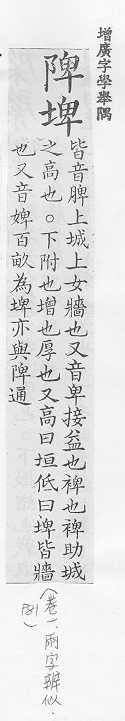 增廣字學舉隅
陴埤
皆音脾上城上女牆也又音卑接益也裨也裨助城
之高也。下附也增也厚也又高曰垣低曰埤皆牆
也又音婢百畝為埤亦與陴通
(卷一、兩字辨似、